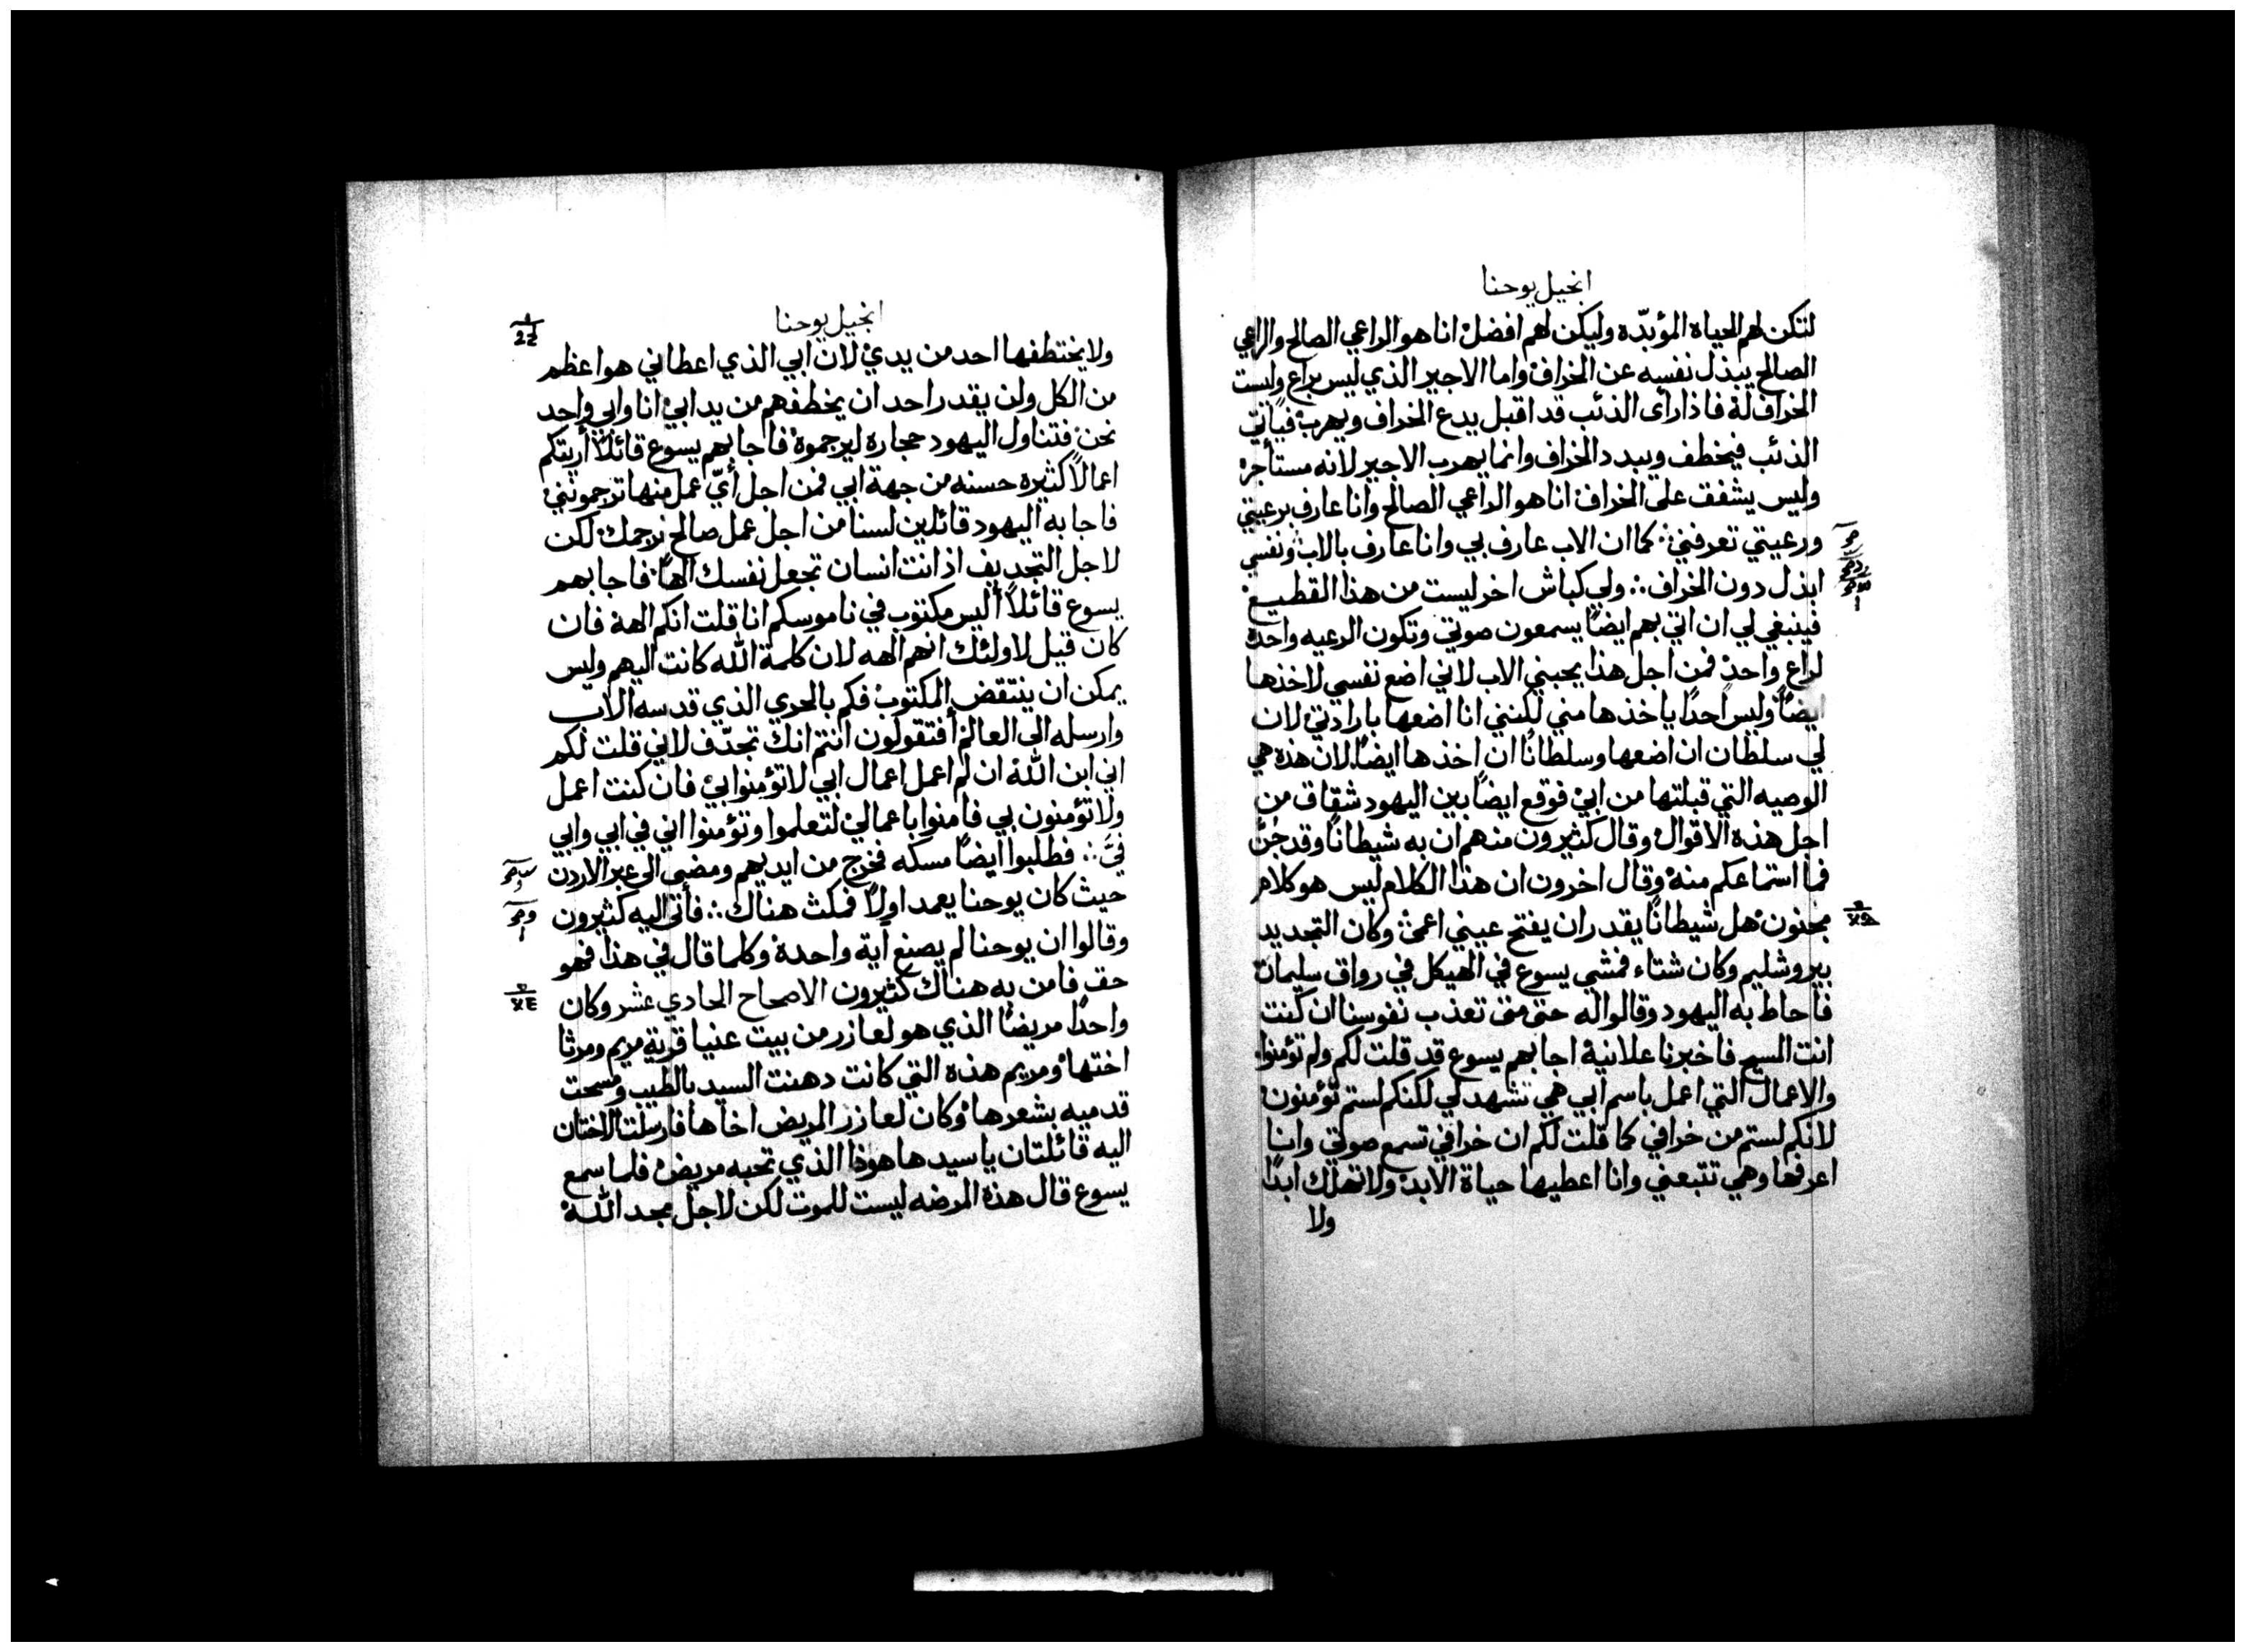 انجيل يوحنا
لتكن لهم الحياه المؤبدّه وليكن لهم افضل انا هو الراعي الصالح والراعي
الصالح يبذل نفسه عن الخراف واما الاجير الذي ليس براع وليست
الخراف لهُ فاذا رأى الذئب قد اقبل يدع الخراف ويهرب فيأتي
الذئب فيخطف ويبدد الخراف وانما يهرب الاجير لانه مستأجر
وليس يشفق على الخراف انا هو الراعي الصالح وانا عارف برعيتي
ورعيتي تعرفني كما ان الاب عارف بي وانا عارف بالاب ونفسي
ابذل دون الخراف ولي كباش اخر ليست من هذا القطيع
فينبغي لي ان اتي بهم ايضًا يسمعون صوتي وتكون الرعيه واحدة
لراع واحد فمن اجل هذا يحبني الاب لاني اضع نفسي لاخذها
ايضًا وليس احدًا ياخذها مني لكنني انا اضعها بارادتي لان
لي سلطان ان اضعها وسلطانًا ان اخذها ايضًا لان هذه هي
الوصيه التي قبلتها من ابي فوقع ايضًا بين اليهود شقاق من
اجل هذه الاقوال وقال كثيرون منهم ان به شيطانًا وقد جُنَّ
فما استماعكم منه وقال اخرون ان هذا الكلام ليس هو كلام
مجنون هل شيطانًا يقدر ان يفتح عيني اعمى وكان التجديد
بيروشليم وكان شتاء فمشي يسوع في الهيكل في رواق سليمان
فاحاط به اليهود وقالوا له حتى متى تعذب نفوسنا ان كنت
انت المسيح فاخبرنا علانية اجابهم يسوع قد قلت لكم ولم تؤمنوا
والاعمال التي اعمل باسم ابي هي تشهد لي لكنكم لستم تؤمنون
لانكم لستم من خرافي كما قلت لكم ان خرافي تسمع صوتي وانا
اعرفها وهي تتبعني وانا اعطيها حياة الابد ولا تهلك ابدًا
ولا
انجيل يوحنا
ولا يختطفها احد من يدي لان ابي الذي اعطاني هو اعظم
من الكل ولن يقدر احد ان يخطفهم من يد ابي انا وابي واحد
نحن فتناول اليهود حجاره ليرجموه فاجابهم يسوع قائلاً أريتكم
اعمالاً كثيره حسنه من جهة ابي فمن اجل أيّ عمل منها ترجموني
فاجابه اليهود قائلين لسنا من اجل عمل صالح نرجمك لكن
لاجل التجديف اذ انت انسان تجعل نفسك الهًا فاجابهم
يسوع قائلاً أليس مكتوب في ناموسكم انا قلت انكم الهة فان
كان قيل لاولئك انهم الهه لان كلمة الله كانت اليهم وليس
يمكن ان ينتقض المكتوب فكم بالحري الذي قدسه الاب
وارسله الى العالم أفتقولون انتم انك تجدّف لاني قلت لكم
اني ابن الله ان لم اعمل اعمال ابي لا تؤمنوا بي فان كنت اعمل
ولا تؤمنون بي فامنوا باعمالي لتعلموا وتؤمنوا اني في ابي وابي
فيَّ فطلبوا ايضًا مسكه فخرج من ايديهم ومضى الى عبر الاردن
حيث كان يوحنا يعمد اولاً فمكث هناك فأتى اليه كثيرون
وقالوا ان يوحنا لم يصنع آية واحدة وكلما قال في هذا فهو
حق فامن به هناك كثيرون الاصحاح الحادي عشر وكان
واحدًا مريضًا الذي هو لعازر من بيت عنيا قرية مريم ومرثا
اختها ومريم هذه التي كانت دهنت السيد بالطيب ومسحت
قدميه بشعرها وكان لعازر المريض اخاها فارسلت الاختان
اليه قائلتان يا سيد ها هوذا الذي تحبه مريض فلما سمع
يسوع قال هذه المرضه ليست للموت لكن لاجل مجد الله